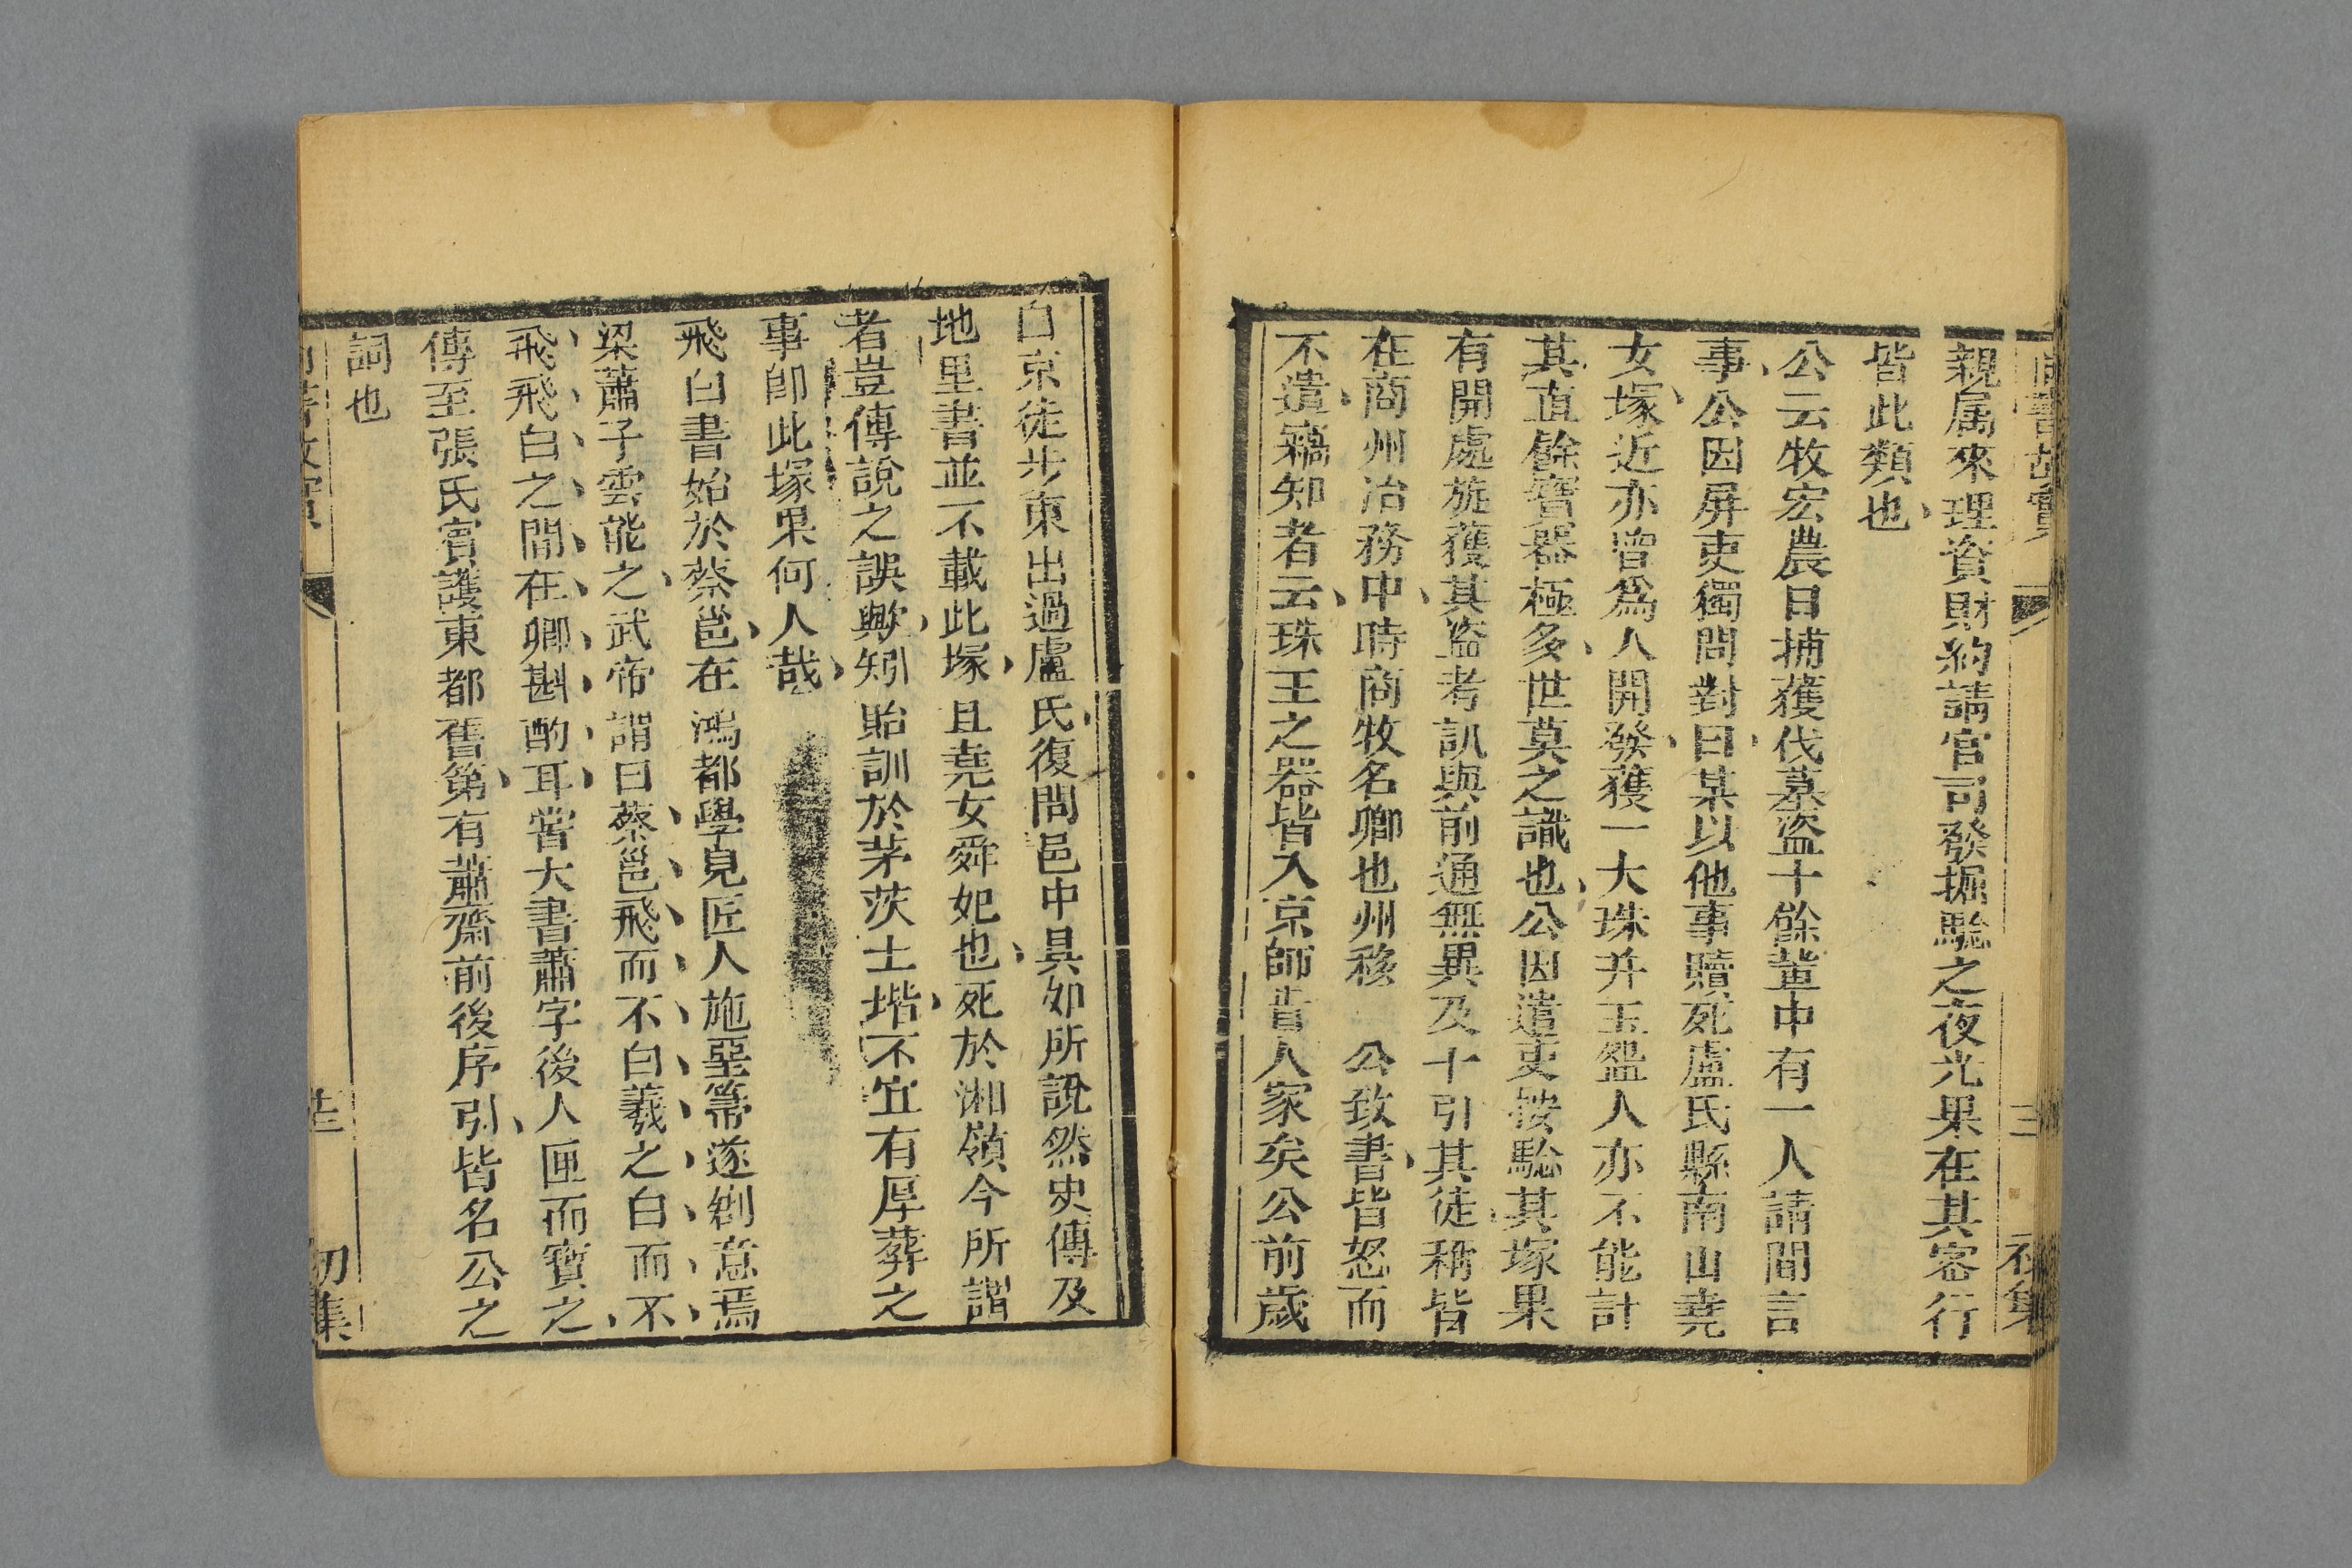 尚書故實
三
初集
親属來理資財約請官司發掘驗之夜光果在其客行
皆此類也
公云牧宏農日捕獲伐墓盜十餘輩中有一人請間言
事公因屏吏獨問對曰某以他事贖死盧氏縣南山堯
女塚近亦曾爲人開發獲一大珠并玉盌人亦不能計
其直餘寶器極多世莫之識也公因遣吏按驗其塚果
有開處旋獲其盜考訊與前通無異及十引其徒稱皆
在商州冶務中時商牧名卿也州移 公致書皆怒而
不遣竊知者云珠玉之器皆入京師貴人家矣公前歲
自京徒步東出過盧氏復問邑中具如所說然史傳及
地里書並不載此塚且堯女舜妃也死於湘嶺今所謂
者豈傳說之誤歟矧貽訓於茅茨土堦不宜有厚葬之
事卽此塚果何人哉
飛白書始於蔡邕在鴻都學見匠人施堊箒遂創意焉
梁蕭子雲能之武帝謂曰蔡邕飛而不白羲之白而不
飛飛白之間在卿斟酌耳嘗大書蕭字後人匣而寶之
傳至張氏賓護東都舊第有蕭齋前後序引皆名公之
詞也
尚書故實
三
初集